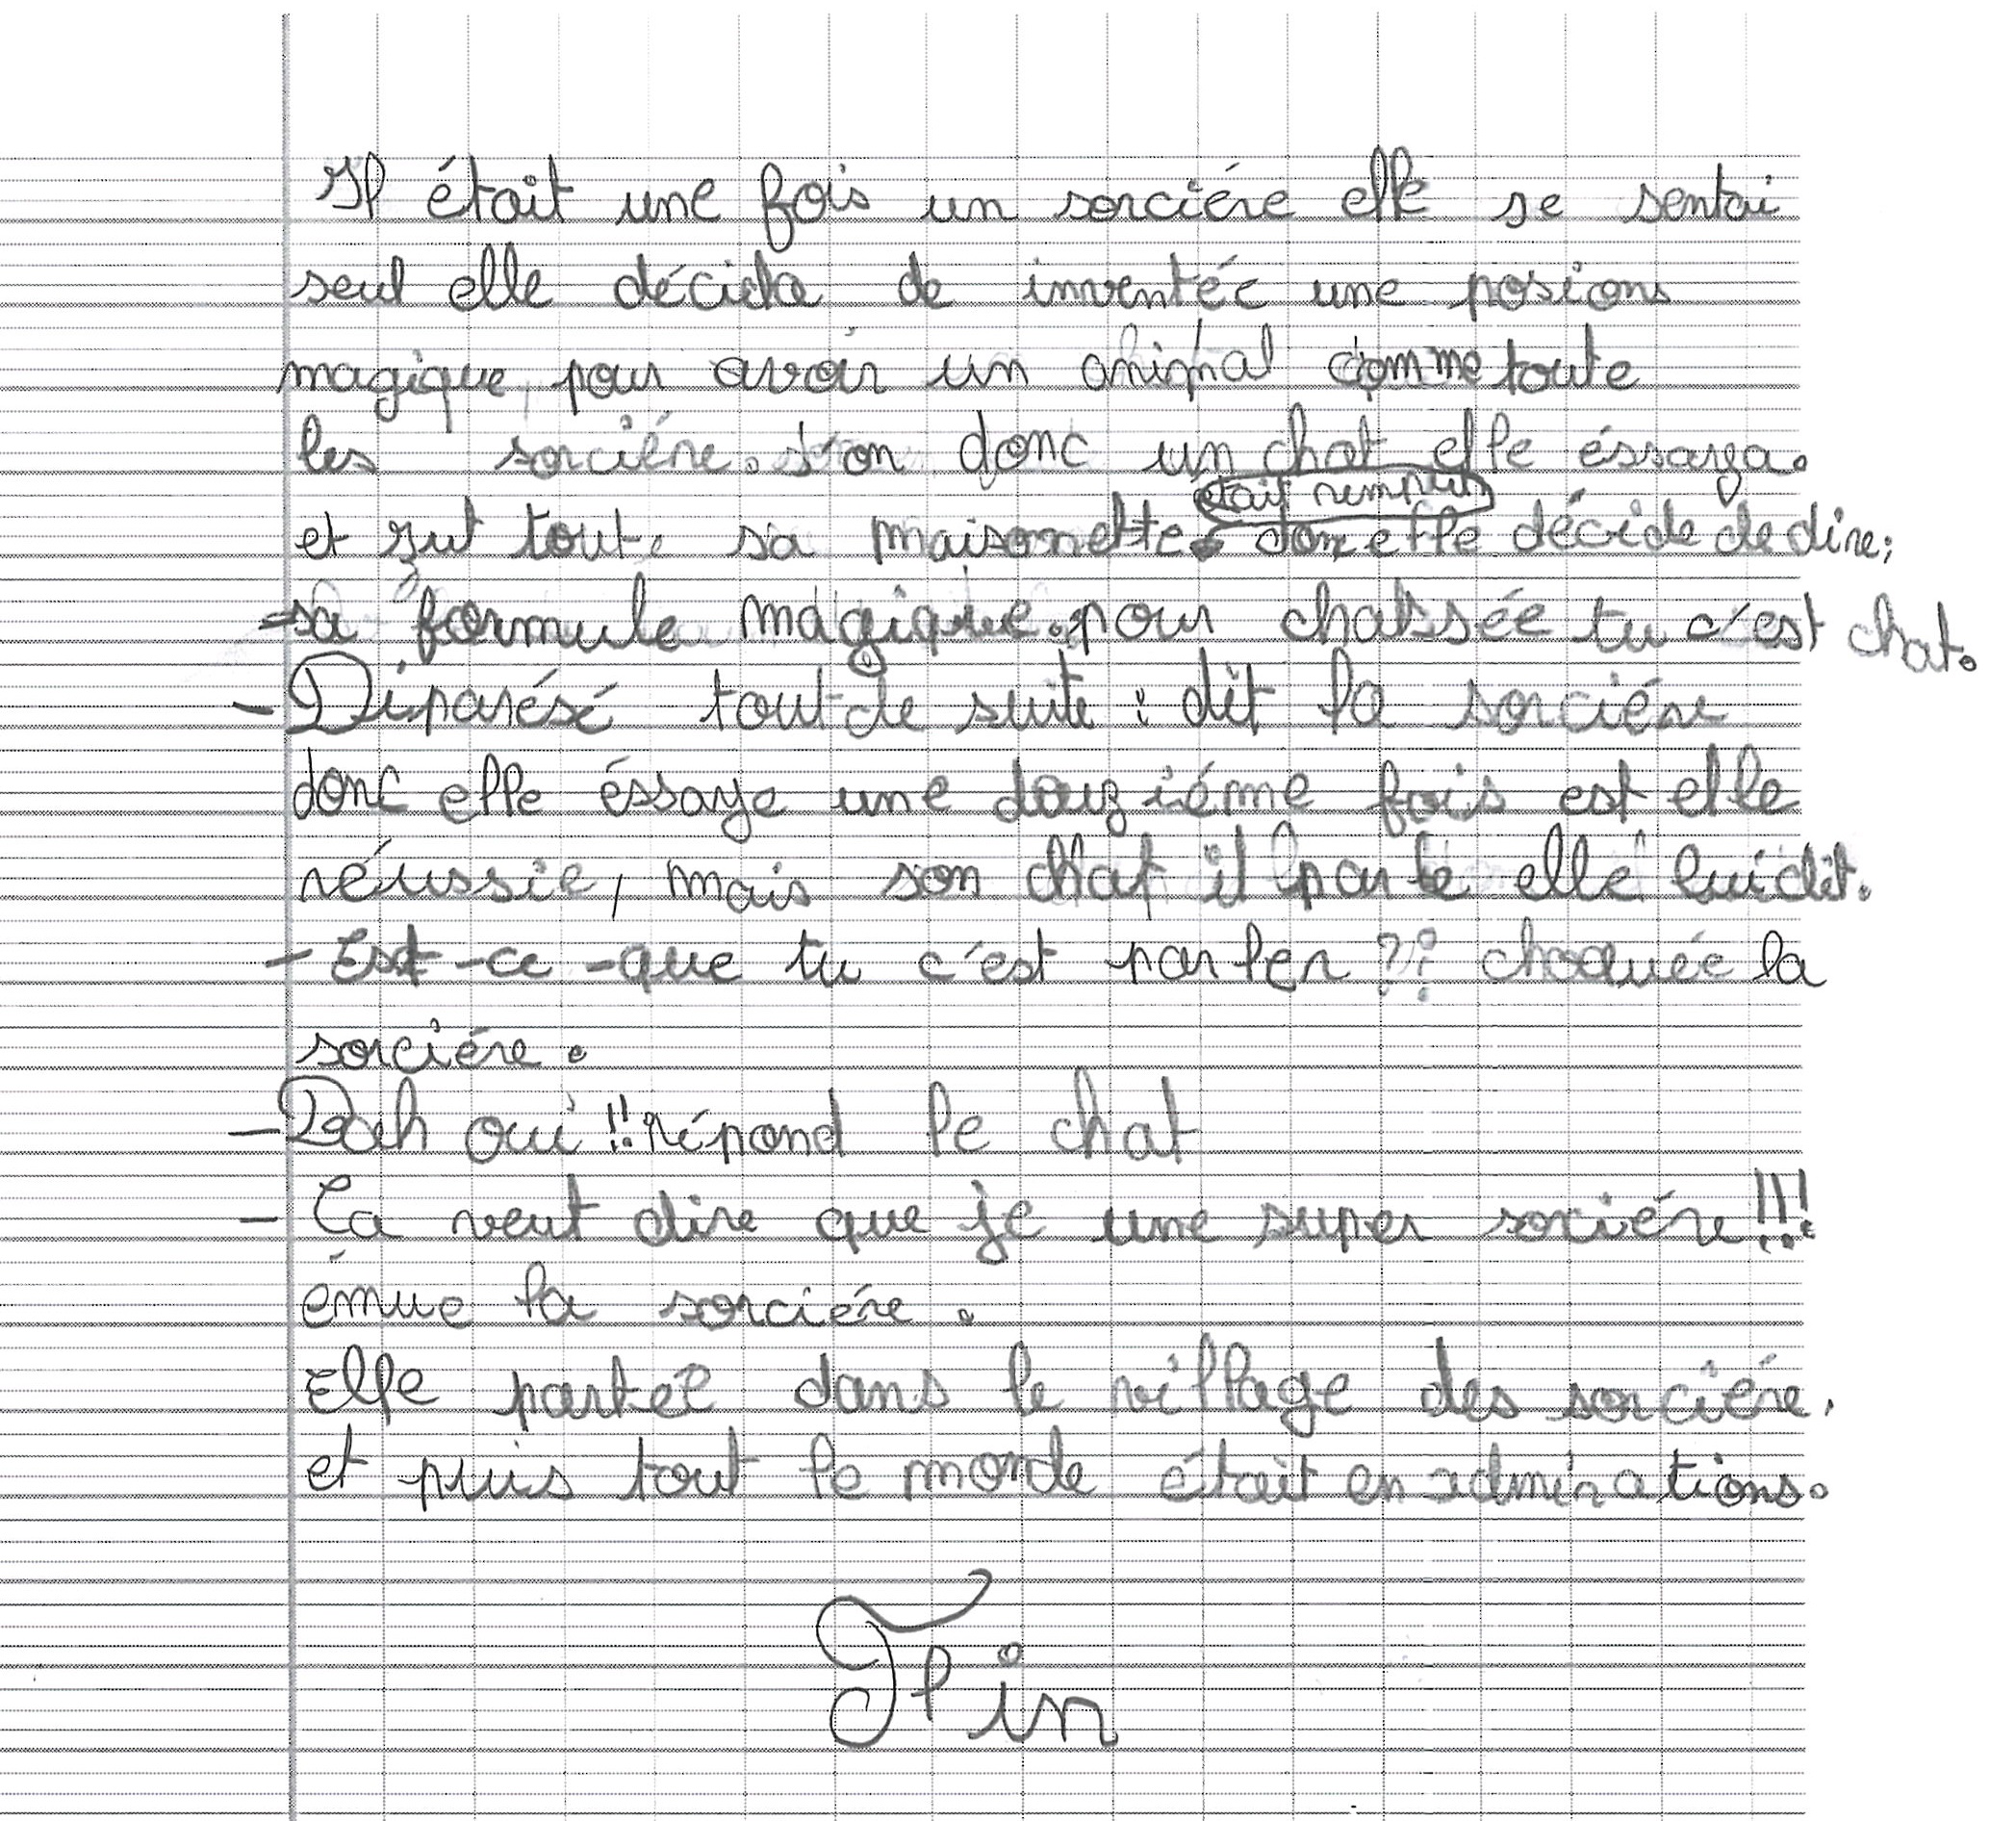 Il était une fois un sorciére elle se sentai
seul elle décida de inventée une posions
magique pour avoir un animal comme toute
les sorciére. s'on donc un chat elle éssaya.
était remplis
et zut toute sa maisonette donc elle décide de dire;
sa formule magique. pour chatssée tu c'est chat.
- Diparésé tout de suite : dit la sorciére
donc elle éssaye une douziéme fois est elle
réussie, mais son chat il parle elle lui dit.
- Est-ce-que tu c'est parler ?? choquée la
sorciére.
- Bah oui !! répond le chat
- Ça veut dire que je une super sorciére !!!
émue la sorciére.
Elle partée dans le village des sorciére.
et puis tout le monde était en admirations.
Fin